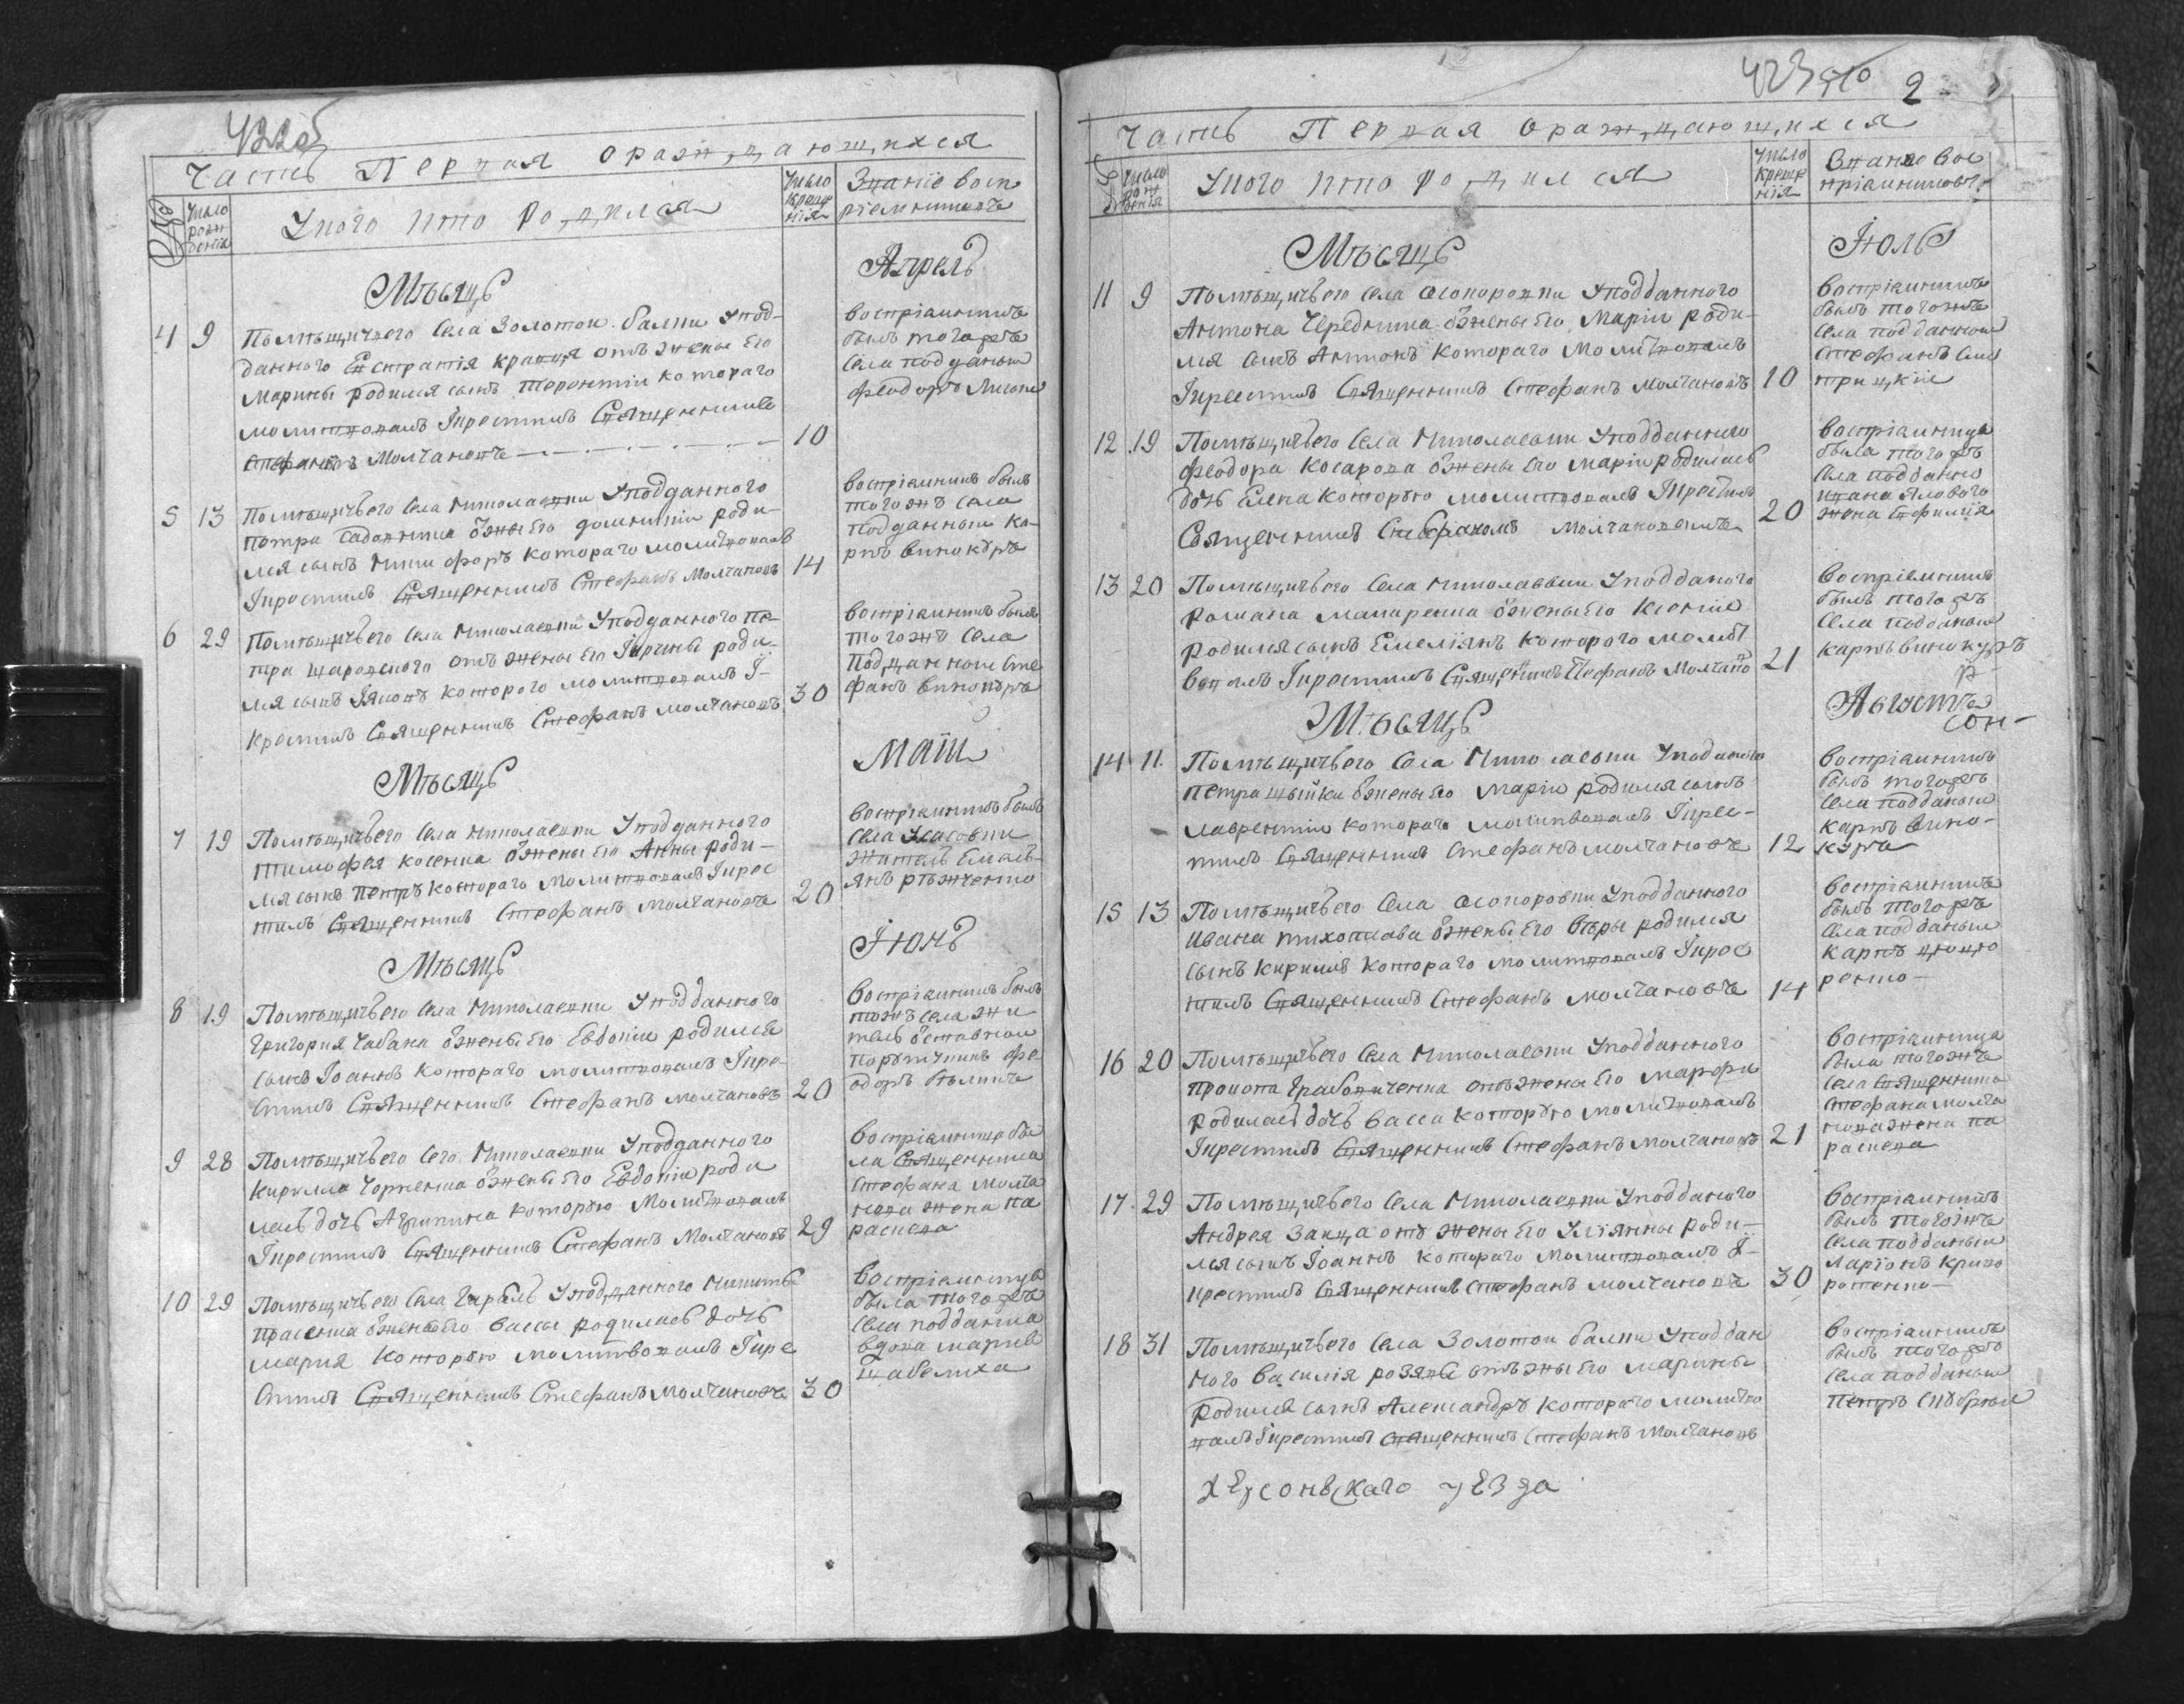 422об
Часть Первая ораждающихся
№
Число рождения
Укого кто родился
Число крещения
Звание воспріемниковъ
Мѣсяць Апрель
4 9 Помѣщичего села Золотой балки Уподданного Евстратія кравця отъ жены Его Марины родился сынъ терентій котораго молитвовалъ Iкрестилъ Священникъ Стефанъ Молчановъ 10
воспріемникъ
былъ тогожъ
села подданый
феодоръ
5 13 Помѣщичьего села Николаевки Уподданного
петра ỡжены Его роди-
лся сынъ Никифоръ котораго молитвовалъ
Iкрестилъ Священникъ Стефанъ Молчановъ 14
воспріемникъ былъ
тогожъ села
подданный ка-
рпъ винокуръ
6 29 Помѣщичьего села Николаевки Уподданного пе-
тра отъ жены Его Iирины роди-
лся сынъ Iяковъ которого молитвовалъ I-
крестилъ Священникъ Стефанъ молчановъ 30
воспріемникъ былъ
тогожъ села
Подданной сте
фанъ винокуръ
Мѣсяць Маій
7 19 Помѣщичьего села Николаевки Уподданного
тимофея косенка ỡжены Его Анны роди-
лся сынъ петръ котораго Молитвовалъ Iкрес
тилъ Священникъ Стефанъ Молчановъ 20
воспріемникъ былъ
села
житель Емель-
янъ
Мѣсяць Iюнь
8 19 Помѣщичьего села Николаевки Уподданного
Григория Чабана ỡжены Его Евдокіи родился
сынъ Iоаннъ котораго молитвовалъ Iкре-
стилъ Священникъ Стефанъ молчановъ 20
Воспріемникъ былъ
тожъ села жи
тель ỡставной
порутчикъ фе
одоръ
9 28 Помѣщичьего сего Николаевки Уподданного
кирилла Чорненка ỡжены Его Евдокіи роди
лась дочь Агрипина которую Молитвовалъ
Iкрестилъ Священникъ Стефанъ Молчановъ 29
воспріемница бы
ла Священника
Стефана молча
нова жена па
раскева
10 29 Помѣщичьего села Уподданного Никиты
ỡжены Его Вассы родилась дочь
Мария которую молитвовалъ Iкре
стилъ Священникъ Стефанъ Молчановъ 30
Воспріемница
была тогожъ
села подданна
вдова
423 2
Часть Первая ораждающихся
Число рождения
Укого кто родился
Число крещения
Звание воспріемниковъ
Мѣсяць Iюль
11 9 Помѣщичьего села Осокоровки Уподданного
Антона Чередника ỡжены Его Маріи роди-
лся сынъ Антонъ котораго Молитвовалъ
Iкрестилъ Священникъ Стефанъ Молчановъ 10
воспріемникъ
былъ тогожъ
села подданной
Стефанъ
12 19 Помѣщичьего села Николаевки Уподданного
феодора Косарова ỡжены Его Маріи родилась
дочь Елена которую молитвовалъ Iкрестилъ
Священникъ Стефаномъ Молчановемъ 20
воспріемница
была тогожъ
села подданно
Ивана Яловаго
жена
13 20 Помѣщичьего села Николаевки Уподданого
романа макаренка ỡжены Его Ксеніи
родился сынъ Емеліянъ которого молит
вовалъ Iкрестилъ Священникъ Стефанъ Молчано 21
Воспріемникъ
былъ тогожъ
села подданый
карпъ винокуръ
Мѣсяць Августъ
14 11 Помѣщичьего села Николаевки Уподданого
петра ỡжены Его Маріи родился сынъ
лаврентіи котораго молитвовалъ Iкрес-
тилъ Священникъ Стефанъ молчановъ 12
воспріемникъ
былъ тогожъ
села подданый
карпъ вино-
куръ
15 13 Помѣщичьего села Осокоровки Уподданного
Ивана ỡжены Его Вѣры родился
сынъ Кирилъ котораго молитвовалъ Iкрес
тилъ Священникъ Стефанъ молчановъ 14
Воспріемникъ
былъ тогожъ
села подданый
карпъ цюцю
ренко
16 20 Помѣщичьего села Николаевки Уподданного
прокопа отъжены Его Марфы
Родилась дочь Васса которую молитвовалъ
Iкрестилъ Священникъ Стефанъ Молчановъ 21
воспріемница
была тогожъ
села Священика
Стефана молча
нова жена па
раскева
17 29 Помѣщичьего села Николаевки Уподданого
Андрея Заяца отъ жены Его Ульянны роди-
лся сынъ Iоаннъ котораго Молитвовалъ I-
крестилъ Священникъ Стефанъ молчановъ 30
воспріемникъ
былъ тогожъ
села подданый
Ларіонъ
18 31 Помѣщичьего села Золотой балки Уподдан
ного Василія отъжены Его Марины
родился сынъ Александръ котораго молитво
валъ Iкрестилъ священникъ Стефанъ Молчановъ
воспріемникъ
былъ тогожъ
села подданый
петръ
херсонскаго уезда